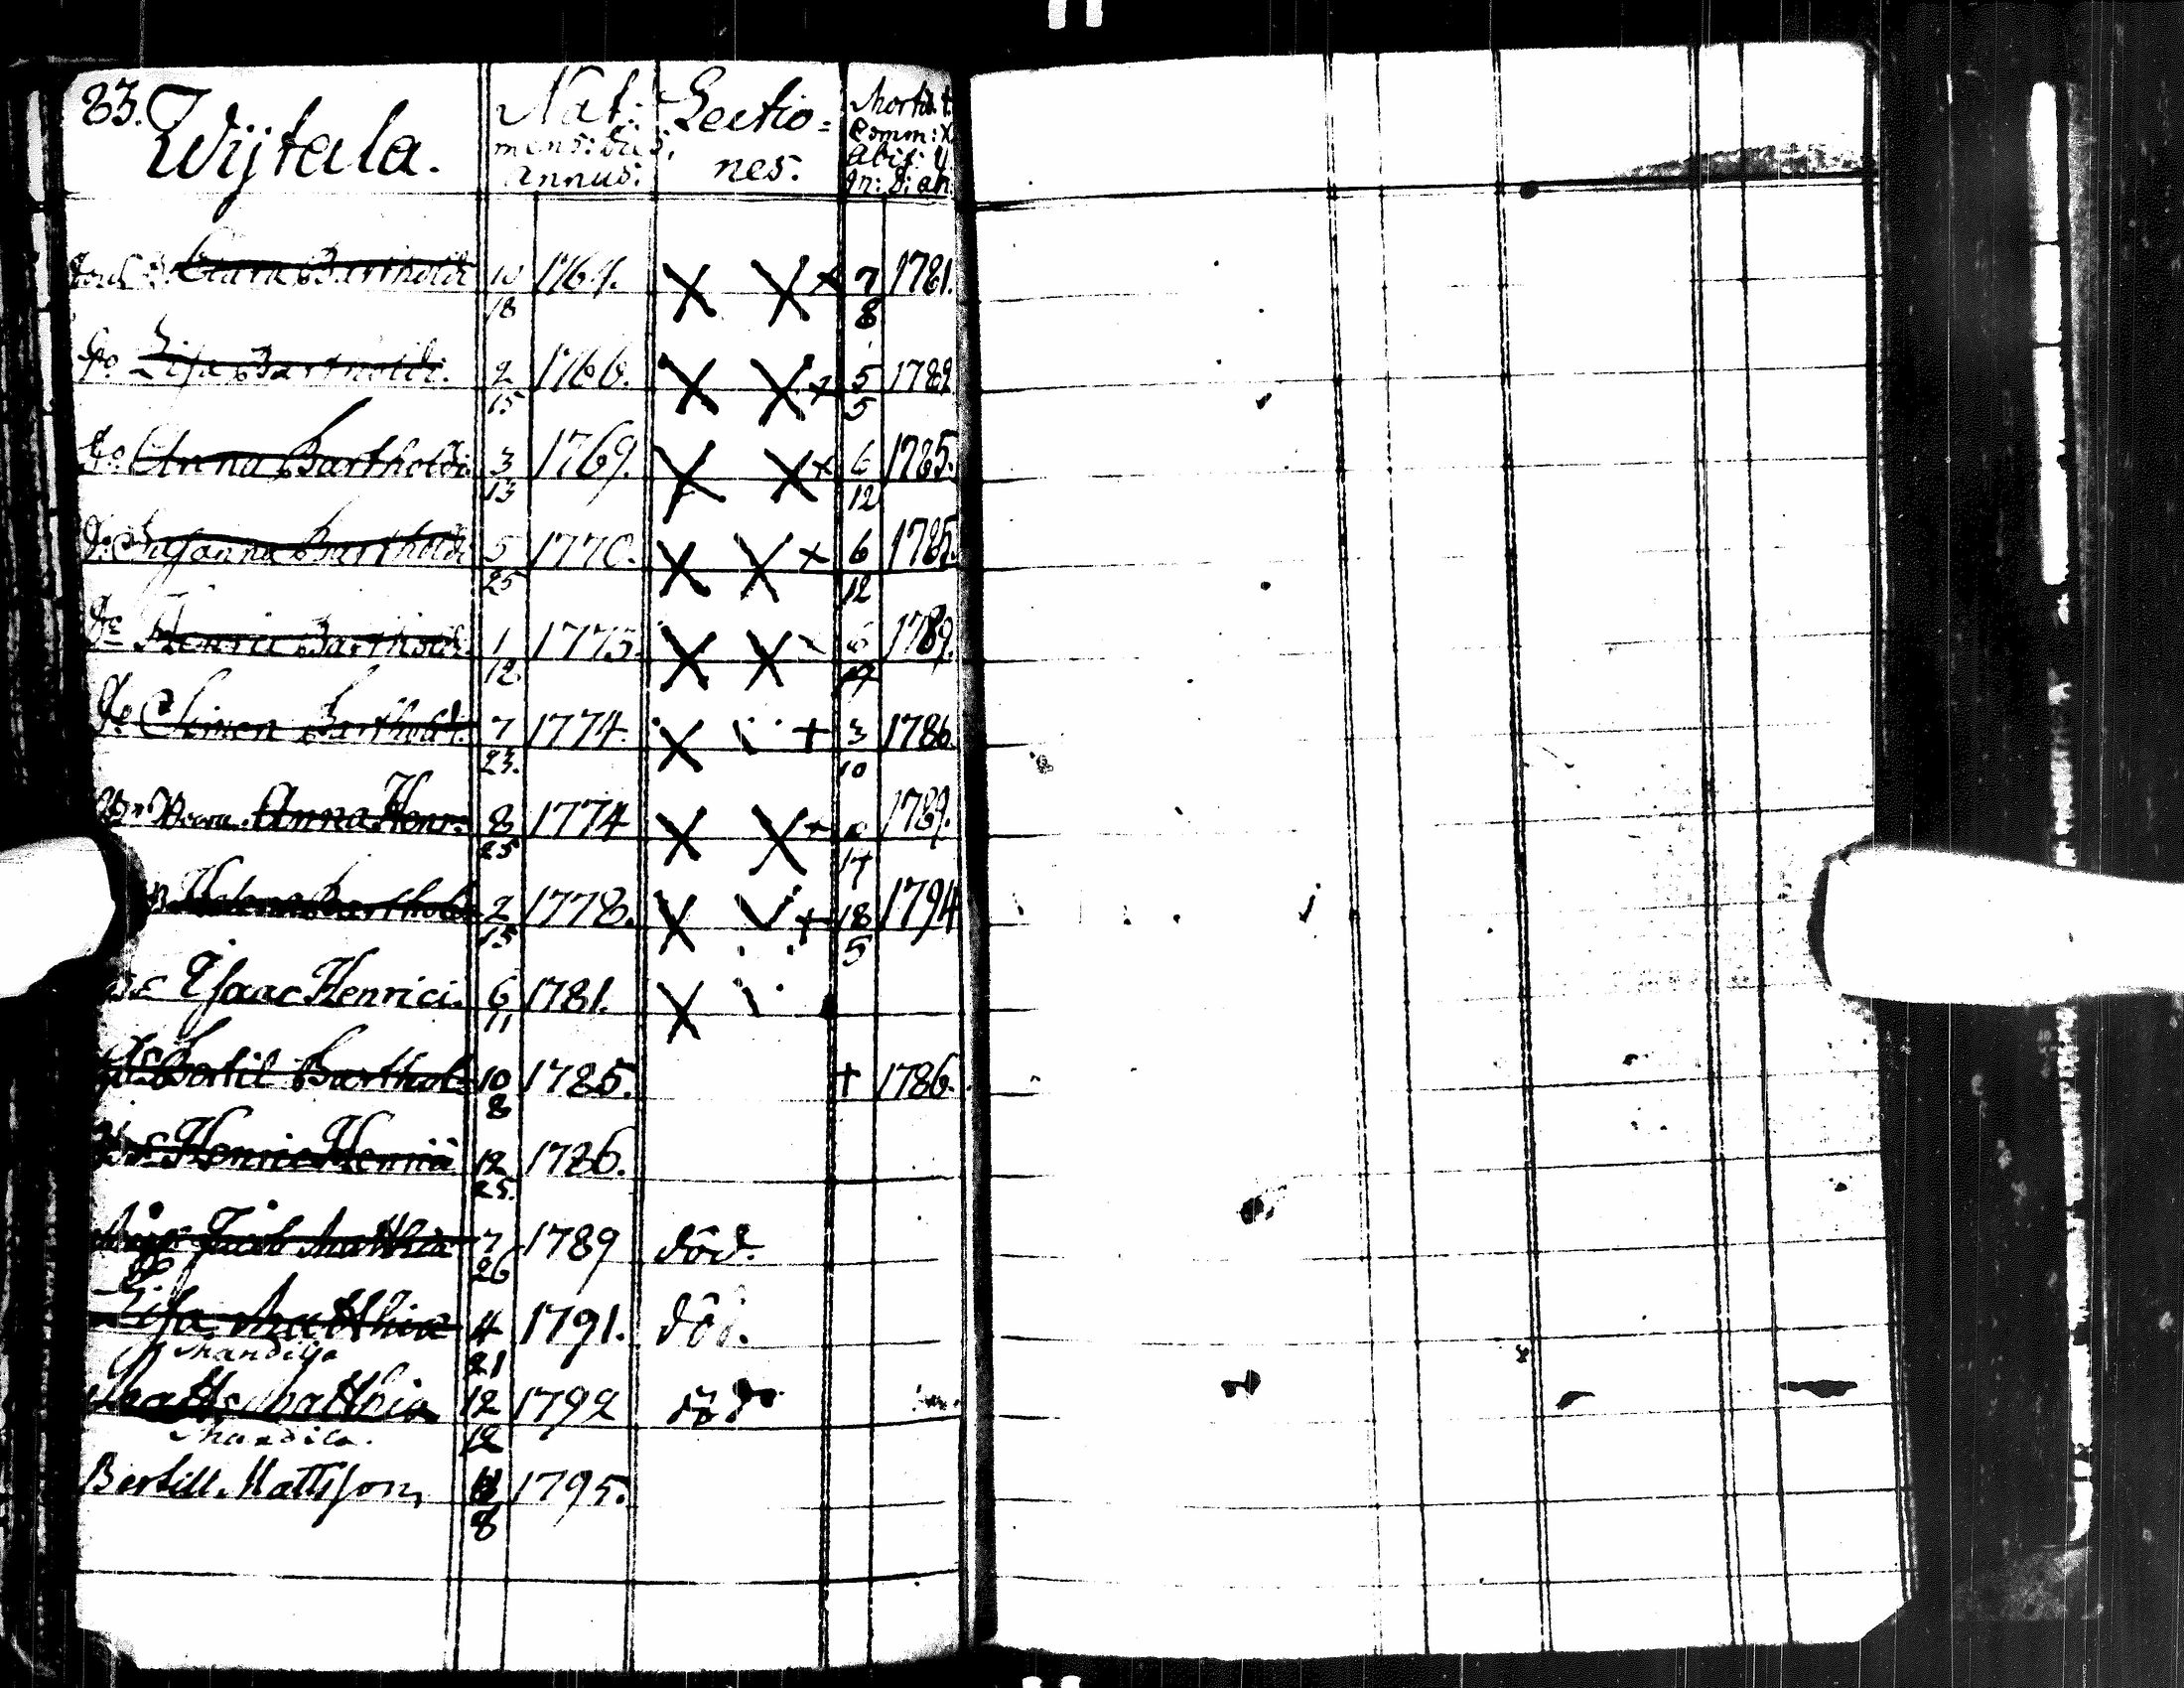 83. Wijtala.
Nat: mens: dies: annus:
Lectio=nes.
Mort: t. Comm: X. Abit: y. In: 8: an.
Clara Bartholdi 10 18 1764. X X + 7 8 1781.
do Lisa Bartholdi. 2 15 1766. X X + 5 5 1782
do Anna Bartholdi 3 13 1769. X X + 6 12 1785.
do Susanna Bartholdi 5 25 1770. X X + 6 12 1785.
Henric Barthold. 1 12 1773. X X 1789.
do Simon Barthold. 7 23. 1774. X + 3 10 1786.
Anna Henr: 8 25 1774 X X + 17 1789.
Helena Barthold 2 15 1778. X + 18 5 1794
Isaac Henrici. 6 11 1781. X
Bertil Barthol: 10 8 1785. † 1786.
Henric Henrici 12 25. 1786.
Jacob Matthiæ 7 26 1789 död.
Lisa Matthiæ 4 21 1791. död.
Mandila
Matts Matthiæ 12 12 1792 död
Mandila.
Bertill Mattsson 8 1795.